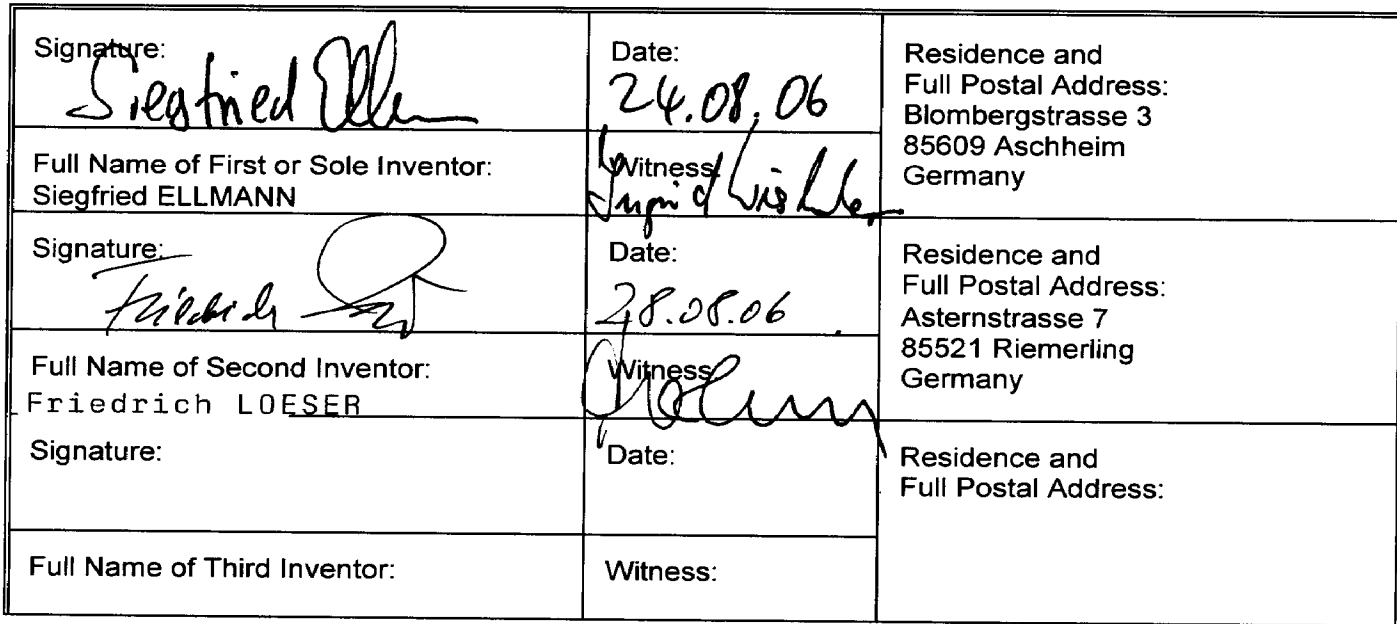 Signature:
Siegfried
Date:
24.08.06
Residence and
Full Postal Address:
Blombergstrasse 3
85609 Aschheim
Germany
Full Name of First or Sole Inventor:
Siegfried ELLMANN
Witness:
Ingrid
Signature:
Friedrich
Date:
28.08.06
Residence and
Full Postal Address:
Asternstrasse 7
85521 Riemerling
Germany
Full Name of Second Inventor:
Friedrich LOESER
Witness
Signature:
Date:
Residence and
Full Postal Address:
Full Name of Third Inventor:
Witness: